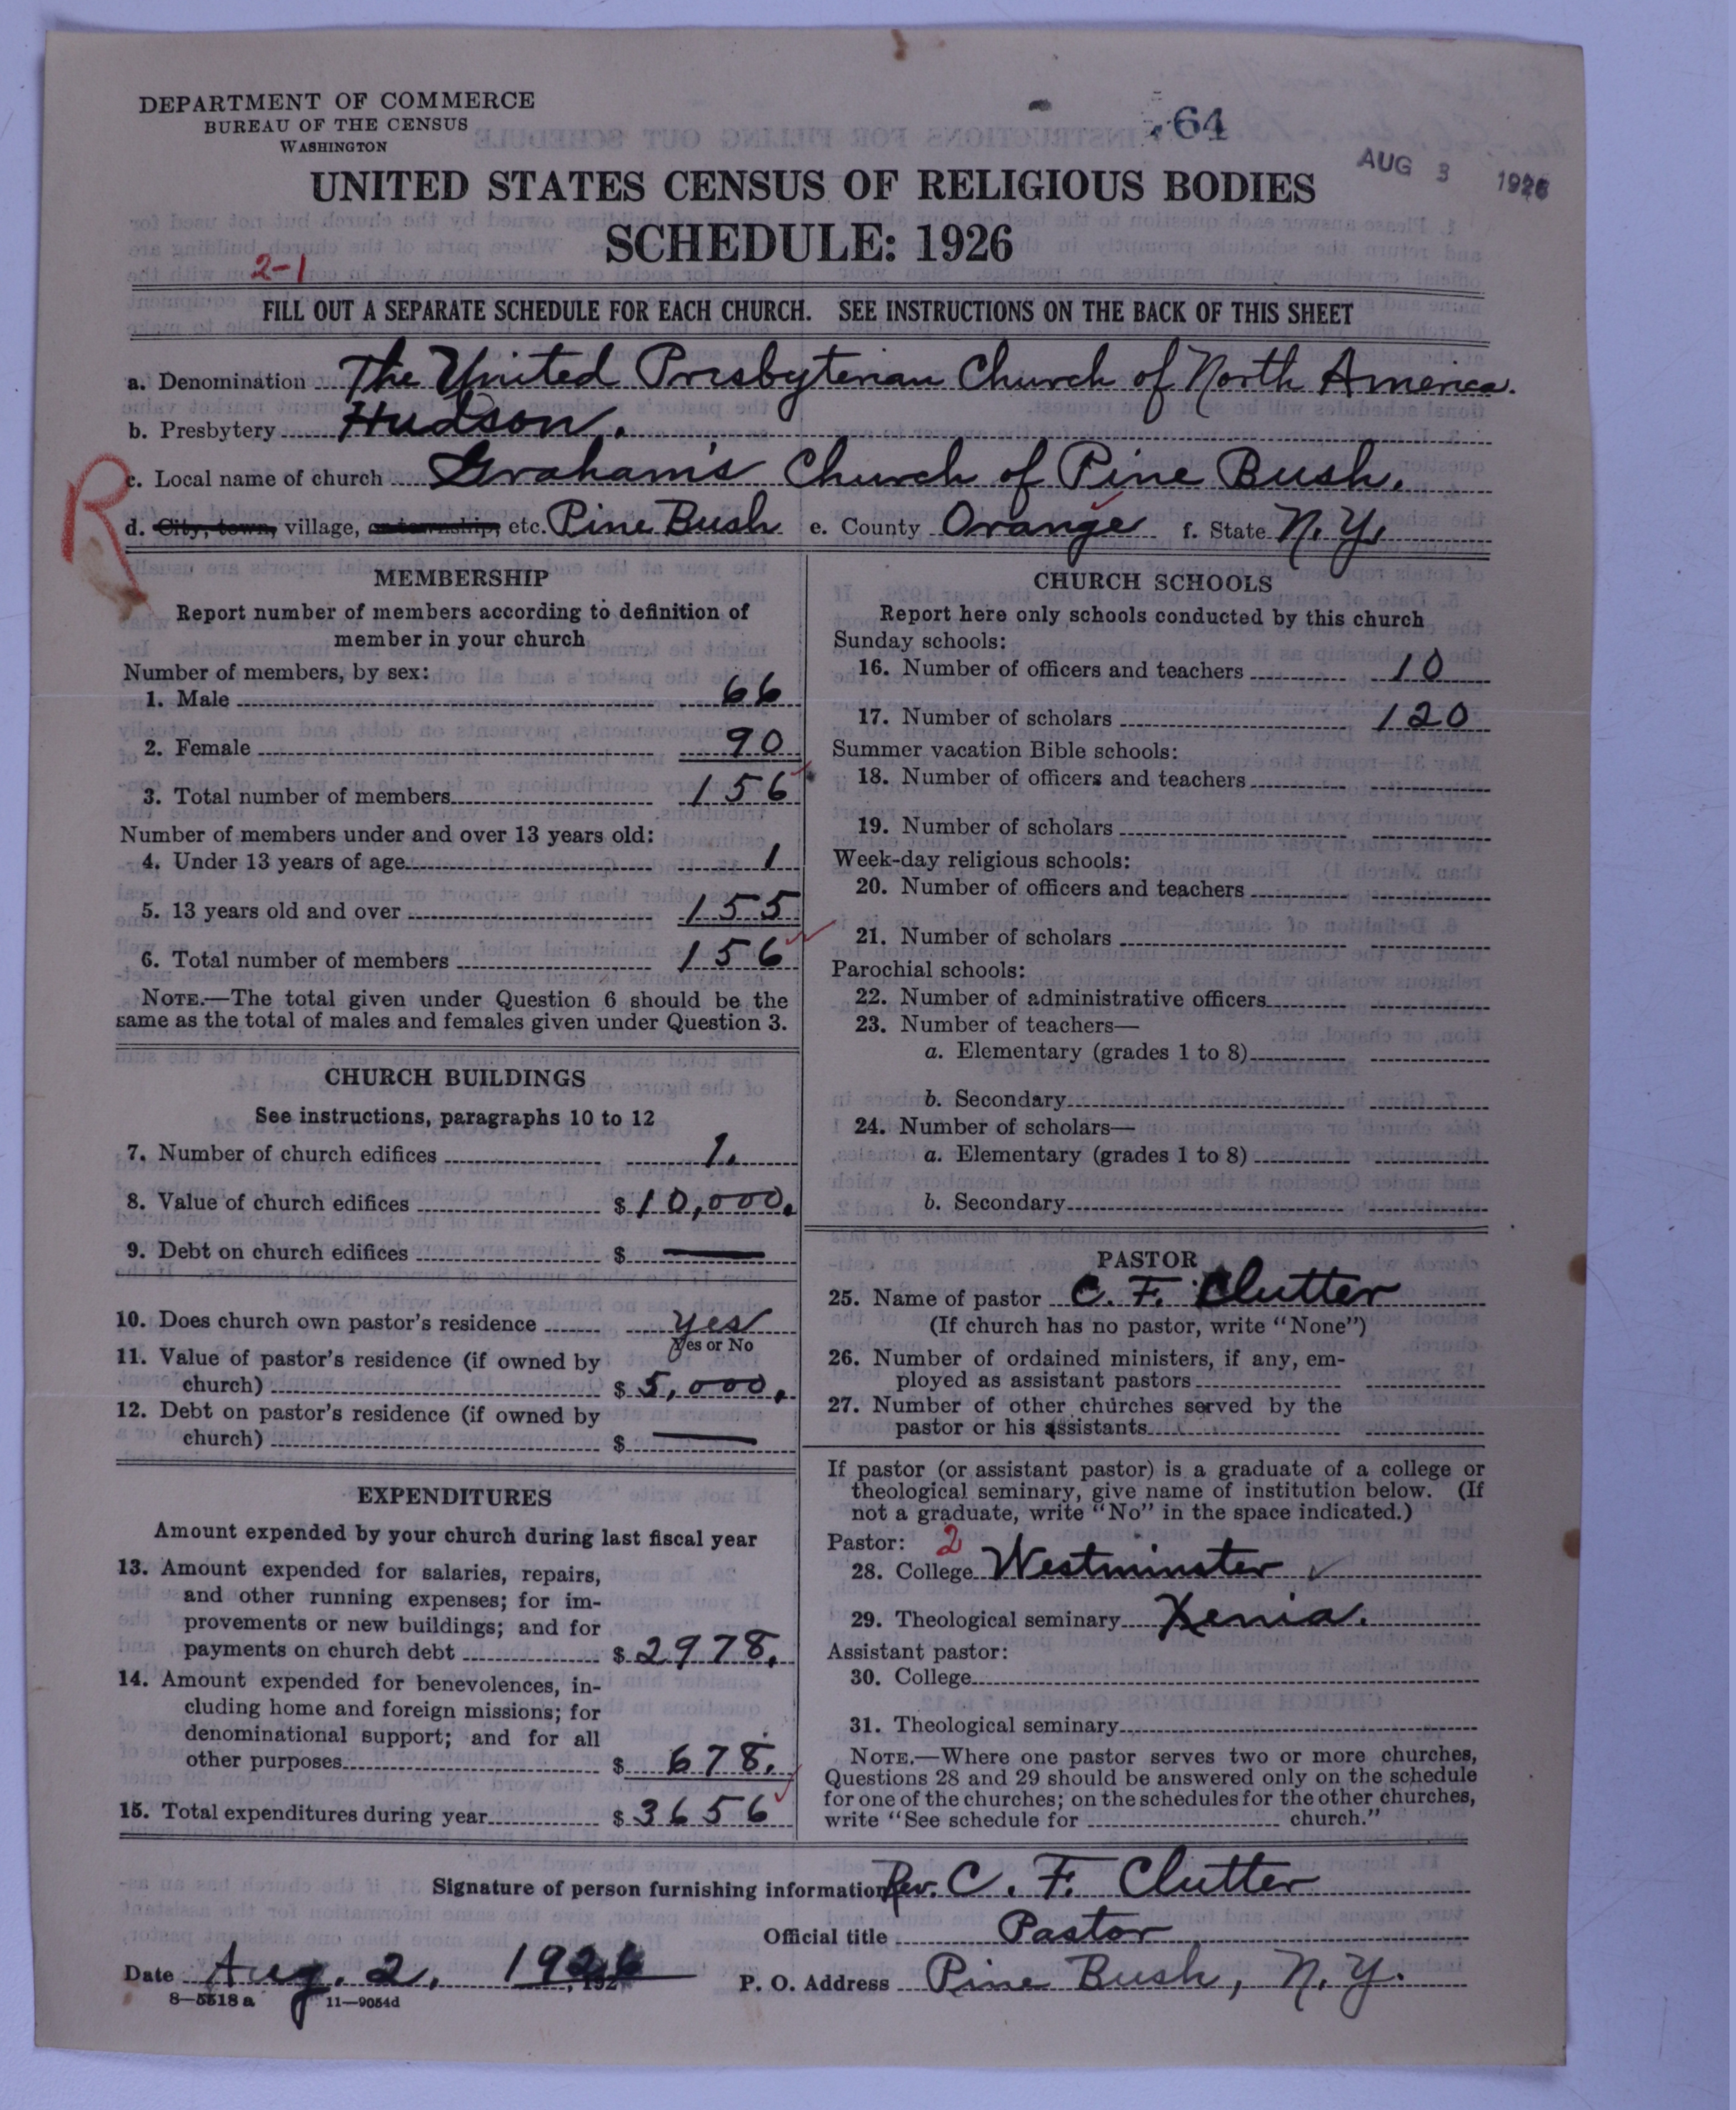 DEPARTMENT OF COMMERCE
BUREAU OF THE CENSUS
WASHINGTON
64
AUG 3 1926
UNITED STATES CENSUS OF RELIGIOUS BODIES
SCHEDULE: 1926
2-1
FILL OUT A SEPARATE SCHEDULE FOR EACH CHURCH. SEE INSTRUCTIONS ON THE BACK OF THIS SHEET
a. Denomination The United Presbyterian Church of North America.
b. Presbytery Hudson.
R
c. Local name of church Graham's Church of Pine Bush.
d. City, town, village, or township, etc. Pine Bush e. County Orange f. State N.Y.
MEMBERSHIP
Report number of members according to definition of
member in your church
Number of members, by sex:
1. Male 66
2. Female 90
3. Total number of members 156
Number of members under and over 13 years old:
4. Under 13 years of age 1
5. 13 years old and over 155
6. Total number of members 156
NOTE.—The total given under Question 6 should be the
same as the total of males and females given under Question 3.
CHURCH BUILDINGS
See instructions, paragraphs 10 to 12
7. Number of church edifices 1.
8. Value of church edifices $ 10,000.
9. Debt on church edifices $ —
10. Does church own pastor's residence yes
Yes or No
11. Value of pastor's residence (if owned by
church) $ 5,000.
12. Debt on pastor's residence (if owned by
church) $ —
EXPENDITURES
Amount expended by your church during last fiscal year
13. Amount expended for salaries, repairs,
and other running expenses; for im-
provements or new buildings; and for
payments on church debt $ 2978.
14. Amount expended for benevolences, in-
cluding home and foreign missions; for
denominational support; and for all
other purposes $ 678.
15. Total expenditures during year $ 3656
CHURCH SCHOOLS
Report here only schools conducted by this church
Sunday schools:
16. Number of officers and teachers 10
17. Number of scholars 120
Summer vacation Bible schools:
18. Number of officers and teachers
19. Number of scholars
Week-day religious schools:
20. Number of officers and teachers
21. Number of scholars
Parochial schools:
22. Number of administrative officers
23. Number of teachers—
a. Elementary (grades 1 to 8)
b. Secondary
24. Number of scholars—
a. Elementary (grades 1 to 8)
b. Secondary
PASTOR
25. Name of pastor C. F. Clutter
(If church has no pastor, write "None")
26. Number of ordained ministers, if any, em-
ployed as assistant pastors
27. Number of other churches served by the
pastor or his assistants
If pastor (or assistant pastor) is a graduate of a college or
theological seminary, give name of institution below. (If
not a graduate, write "No" in the space indicated.)
Pastor: 2
28. College Westminster
29. Theological seminary Xenia.
Assistant pastor:
30. College
31. Theological seminary
NOTE.—Where one pastor serves two or more churches,
Questions 28 and 29 should be answered only on the schedule
for one of the churches; on the schedules for the other churches,
write "See schedule for church."
Signature of person furnishing information Rev. C. F. Clutter
Official title Pastor
Date Aug. 2, 1926, 192 P. O. Address Pine Bush, N.Y.
8-5518a 11-9054d